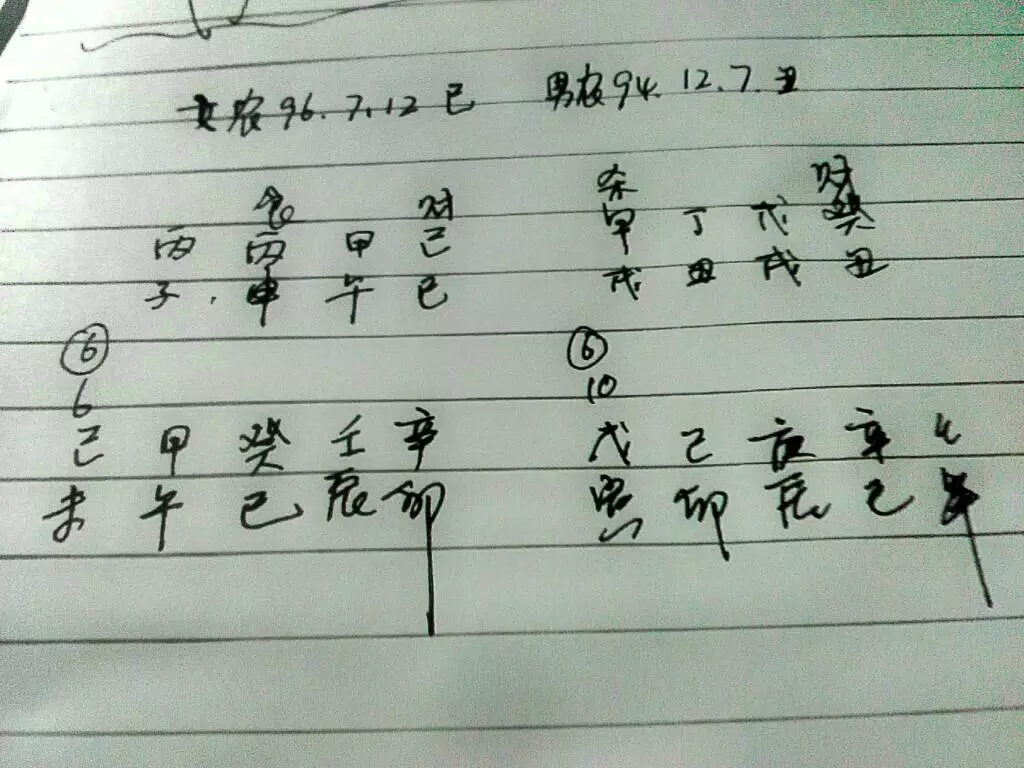 女农96.7.12巳 男农94.12.7.丑
食 财 杀 财
丙 丙 甲 己 甲 丁 戊 癸
子. 申 午 巳 戌 丑 戌 丑
⑥ ⑥
6 10
己 甲 癸 壬 辛 戊 己 辛
未 午 巳 辰 卯 寅 卯 辰 巳